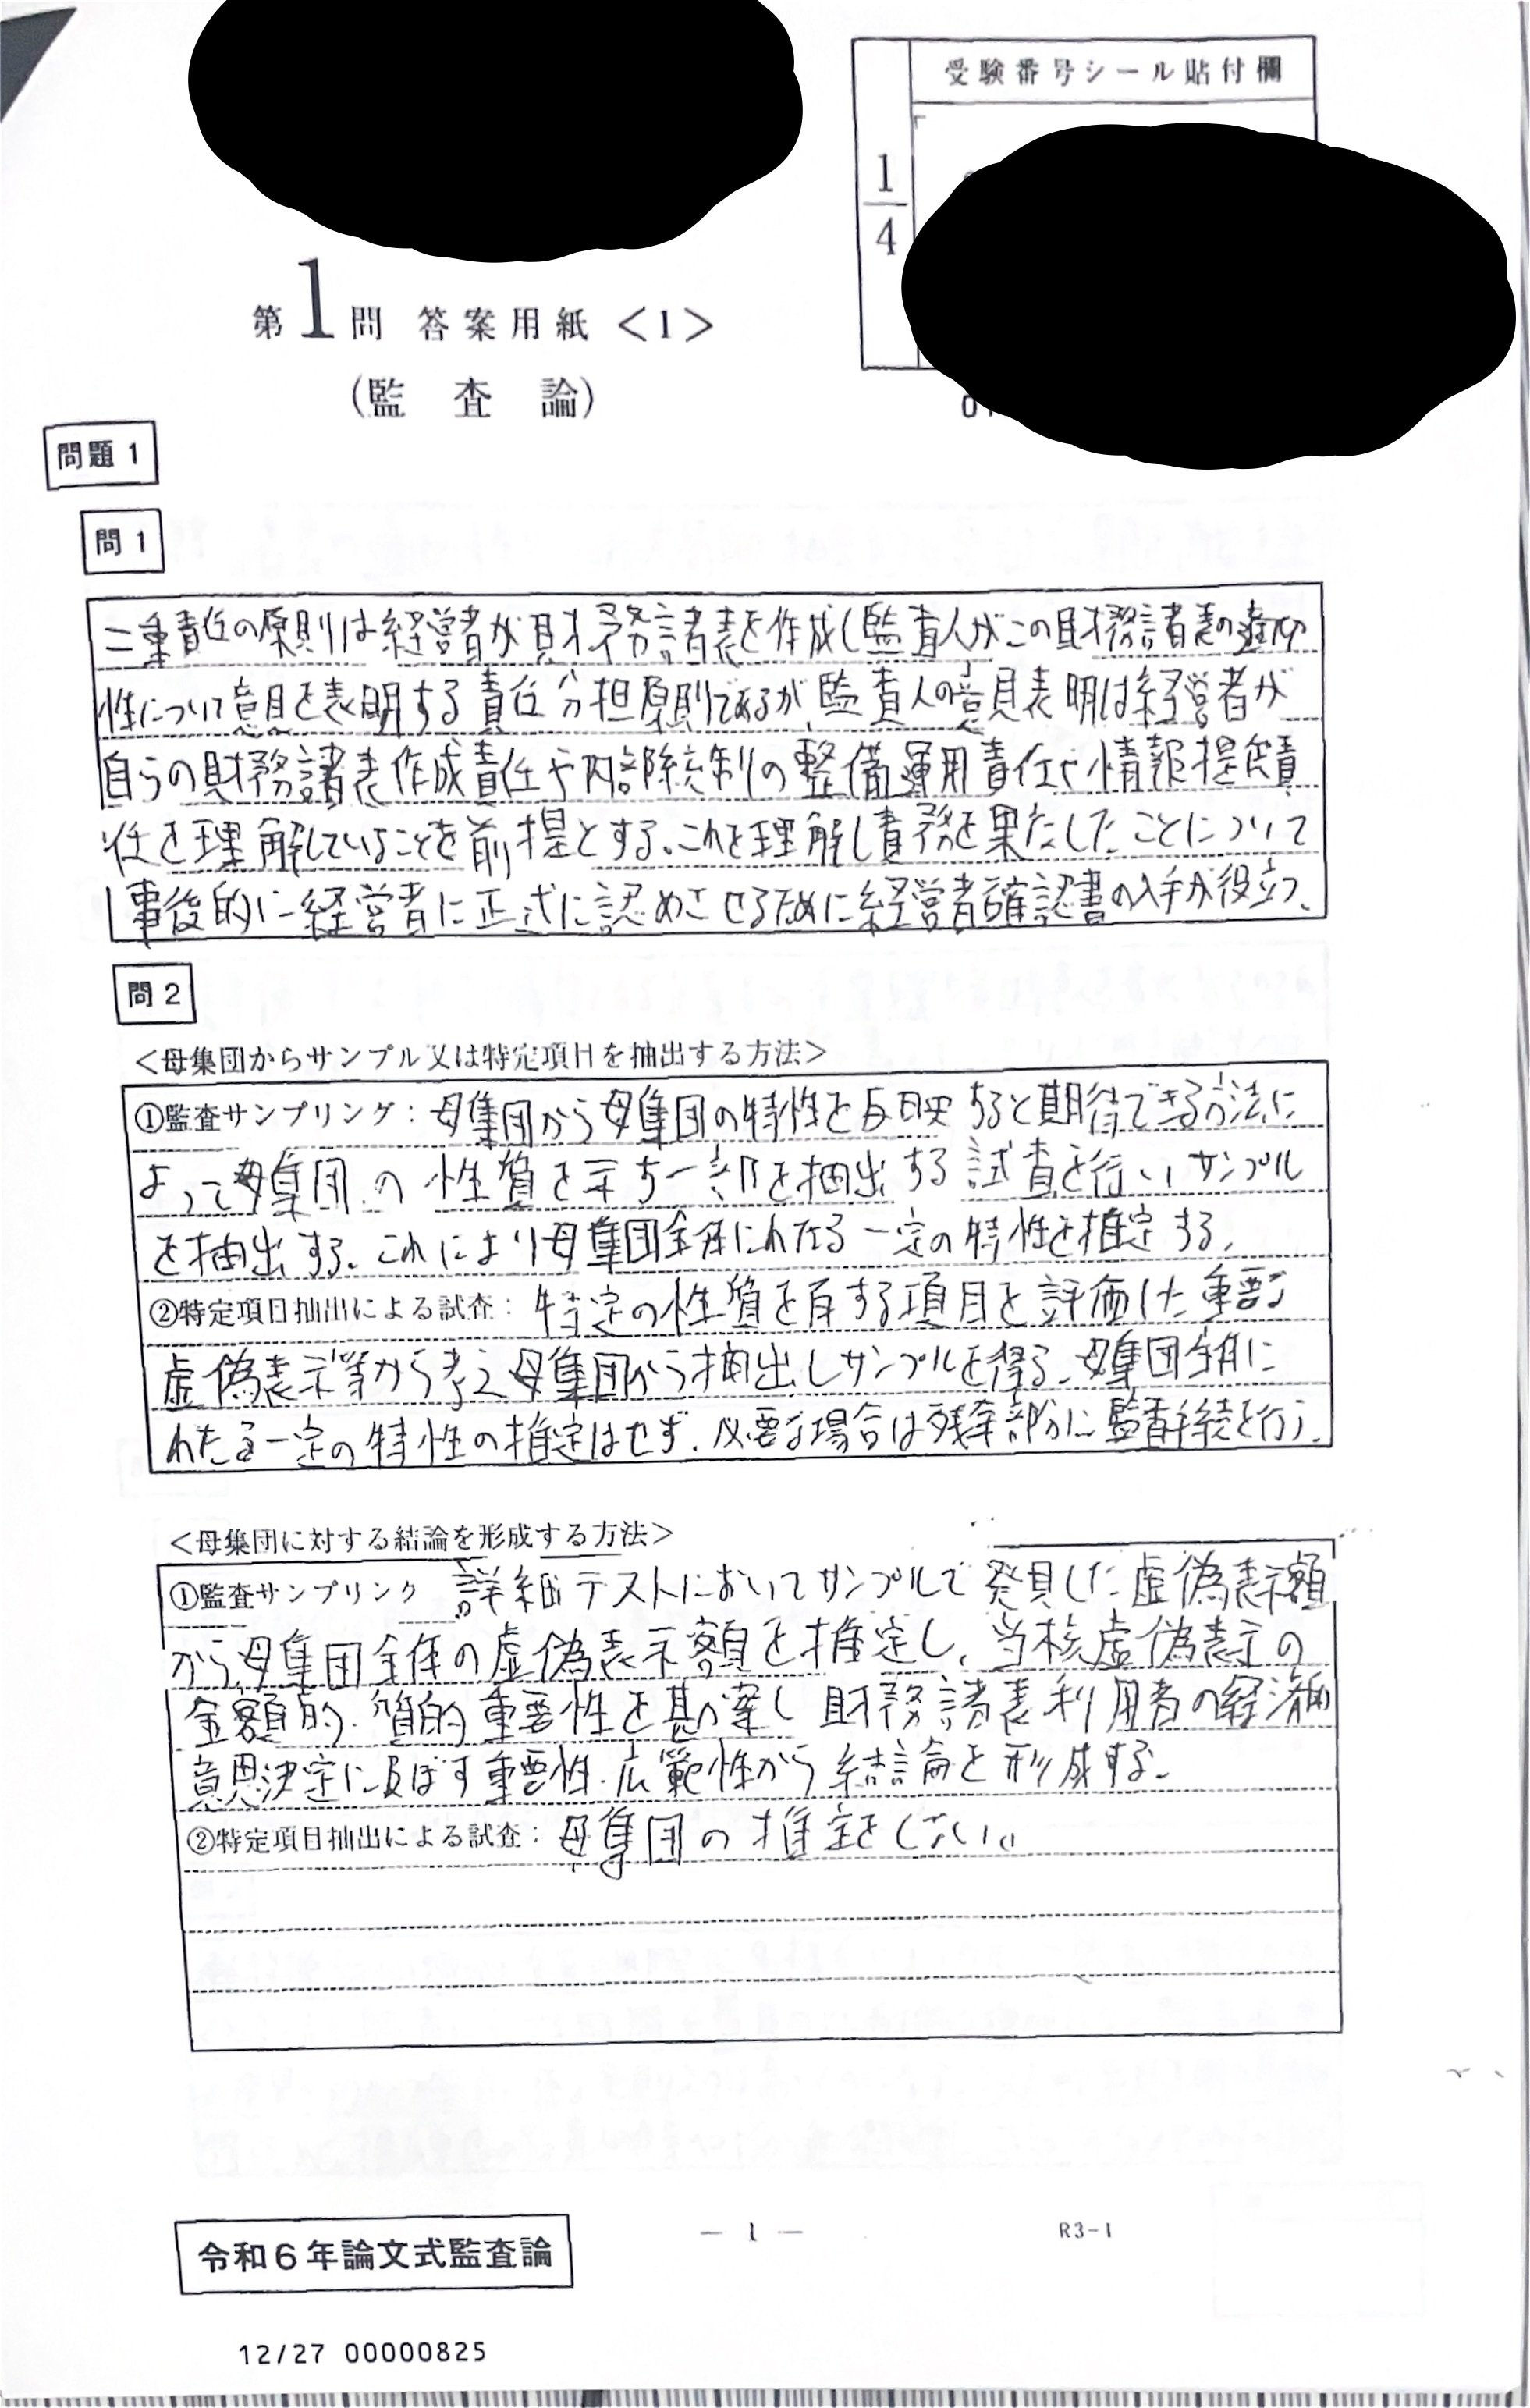 受験番号シール貼付欄
1
4
第1問 答案用紙<1>
(監 査 論)
問題1
問1
二重責任の原則は経営者が財務諸表を作成し監査人がこの財務諸表の適正
性について意見を表明する責任分担原則であるが、監査人の意見表明は経営者が
自らの財務諸表作成責任や内部統制の整備運用責任や情報提供責
任を理解していることを前提とする。これを理解し責務を果たしたことについて
事後的に経営者に正式に認めさせるために経営者確認書の入手が役立つ。
問2
<母集団からサンプル又は特定項目を抽出する方法>
①監査サンプリング:母集団から母集団の特性を反映すると期待できる方法に
よって母集団の性質を示す一部を抽出する試査を行いサンプル
を抽出する。これにより母集団全体にわたる一定の特性を推定する。
②特定項目抽出による試査:特定の性質を有する項目を評価した重要な
虚偽表示等から考え母集団から抽出しサンプルを得る。母集団全体に
わたる一定の特性の推定はせず、必要な場合は残余部分に監査手続を行う。
<母集団に対する結論を形成する方法>
①監査サンプリング 詳細テストにおいてサンプルで発見した虚偽表示額
から、母集団全体の虚偽表示額を推定し、当該虚偽表示の
金額的・質的重要性を勘案し財務諸表利用者の経済的
意思決定に及ぼす重要性・広範性から結論を形成する。
②特定項目抽出による試査:母集団の推定をしない。
令和6年論文式監査論
— 1 —
R3-1
12/27 00000825